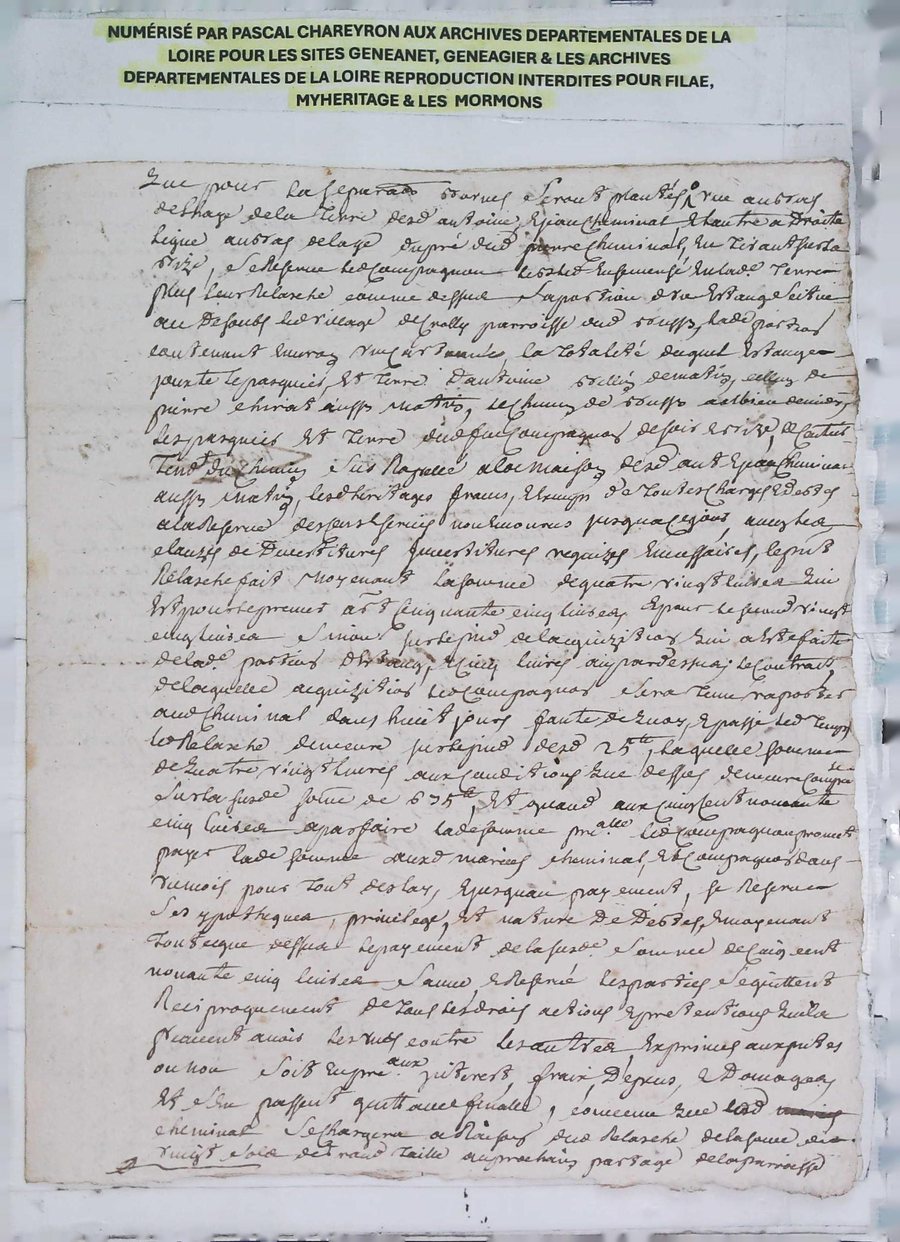 NUMÉRISÉ PAR PASCAL CHAREYRON AUX ARCHIVES DEPARTEMENTALES DE LA
LOIRE POUR LES SITES GENEANET, GENEAGIER & LES ARCHIVES
DEPARTEMENTALES DE LA LOIRE REPRODUCTION INTERDITES POUR FILAE,
MYHERITAGE & LES MORMONS
Que pour la separaon bornes seront plantés, vne au bas
de lhage de la Terre desd antoine & jean Cheminal, & lautre a Droite
Ligne au bas de lage du pré dud pierre Cheminal, en Tirant sur la
Bize, se Reserve led Compagnon ensemensé en lade Terre
plus leur Relasche comme dessus la portion d'vn Estang scitue
au Desoubs led village de parroisse dud bousss, lade portion
contenant la Totalité duquel Estang
jouxte le pasquier et Terre d'antoine de matin, celluy de
pierre aussy matin, le Chemin de a
Les pasquier et Terre dud feu Compagnon de soir & bize,
Tend du Chemin a la maison desd ant & jean Cheminal
aussy matin, les heritages francs, & exempt de Toutes Charges & debtes
a la Reserve des jusqua ce jour, avec les
clauzes de Devestitures Jnvestitures requizes & necessaires, le pnt
Relasche fait moyenant la somme de quatre vingt livres Qui
Est pour le premier art Cinquante cinq livres & pour le second vingt
cinq livres sur le pied de lacquizition Qui a este faite
de lade portion d'Estang, & Cinq livres au par dessus, le Contrat
de laquelle acquizition led Compagnon sera Tenu raporter
aud Cheminal dans huict jours faute de Quoy, & passé led Temps
led Relasche demeure sur le pied desd 25tt, laquelle somme
de Quatre vingt livres aux Conditions Que dessus demeure Compse
sur la susde some de 675tt, Et quand aux Cinq Cent nonante
cinq livres a parfaire lade somme prialle led Compagnon promet
payer lade somme auxd mariés Cheminal, & Compagnon dans
vn mois pour Tout deslay, & jusquau payement, se Reserve
Ses ypotheques, privilege, et nature De Debtes, & moyenant
Tout ce que dessus le payement de la susde Somme de Cinq cent
nonante cinq livres Sauve & Reservé les parties se quittent
Reciproquement de Tous les droits actions & pretentions Quils
peuvent avoir les vns contre les autres, exprimés aux pntes
ou non soit en prial aux jnterest, frais, Depens, & Domages
Et s'en passent quittance finalle, convenu Que led
Cheminal se Chargera a Raison dud Relasche de la some de
vingt sols de Grand Taille au prochain partage de la parroisse